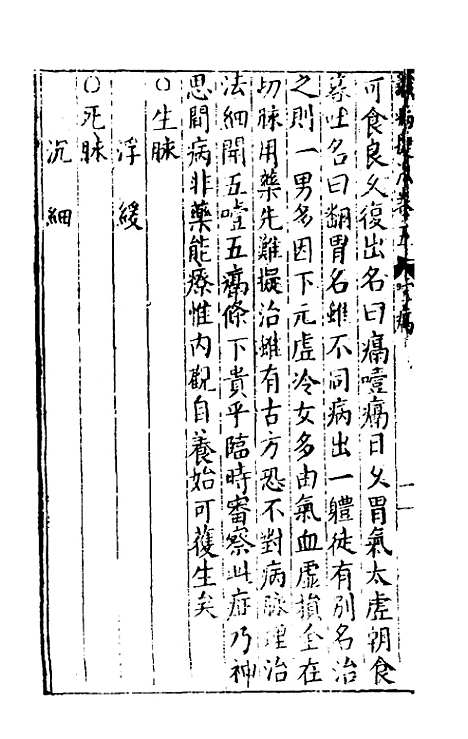 可食良久復出名曰膈噎膈日久胃氣太虛朝食
暮吐名曰翻胃名雖不同病出一體徒有別名治
之則一男多因下元虛冷女多由氣血虛損全在
切脉用藥先難擬治雖有古方恐不對病脉理治
法細開五噎五膈條下貴乎臨時審察此症乃神
思間病非藥能療惟內觀自養始可復生矣
○生脉
浮緩
○死脉
沉細